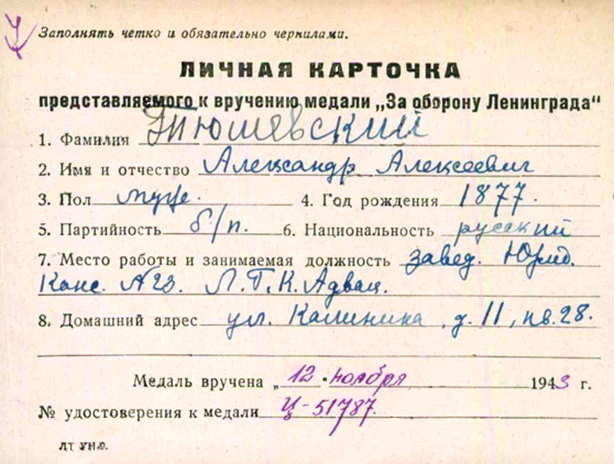 Заполнять четко и обязательно чернилами.
ЛИЧНАЯ КАРТОЧКА
представляемого к вручению медали „За оборону Ленинграда“
1. Фамилия Тюшевский
2. Имя и отчество Александр Алексеевич
3. Пол муж. 4. Год рождения 1877.
5. Партийность б/п. 6. Национальность русский
7. Место работы и занимаемая должность завед. Юрид.
Конс. №23. Л.Г.К. Адвок.
8. Домашний адрес ул. Калинина, д. 11, кв. 28.
Медаль вручена „12 ноября 1943 г.
№ удостоверения к медали Ц-51787
ЛТ УН.О.